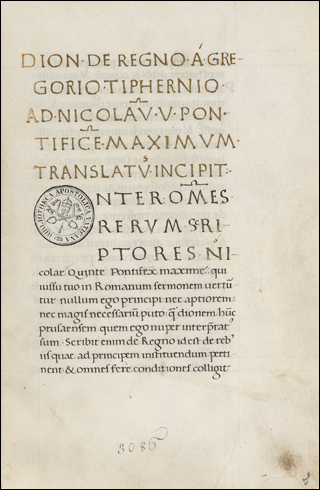 DION·DE REGNO·Á GRE-
GORIO·TIPHERNIO·
AD·NICOLAV̄·V·PON-
TIFICĒ·MAXIMVM·
TRANSLATV͛·INCIPIT:·
NTER·OM̄ES
RERVM SCRI-
PTORES·NI
colae Quinte Pontifex maxime qui
iussu tuo in Romanum sermonem vertũ
tur nullum ego principi nec aptiorem:
nec magis necessarium puto: q̃ dionem hũc
prusaensem quem ego nuper interp̃tat'
sum. Scribit enim de Regno id est de reb'
iis quae ad principem instituendum perti
nent & omnes fere conditiones colligit
BIBLIOTHECA APOSTOLICA VATICANA
3086